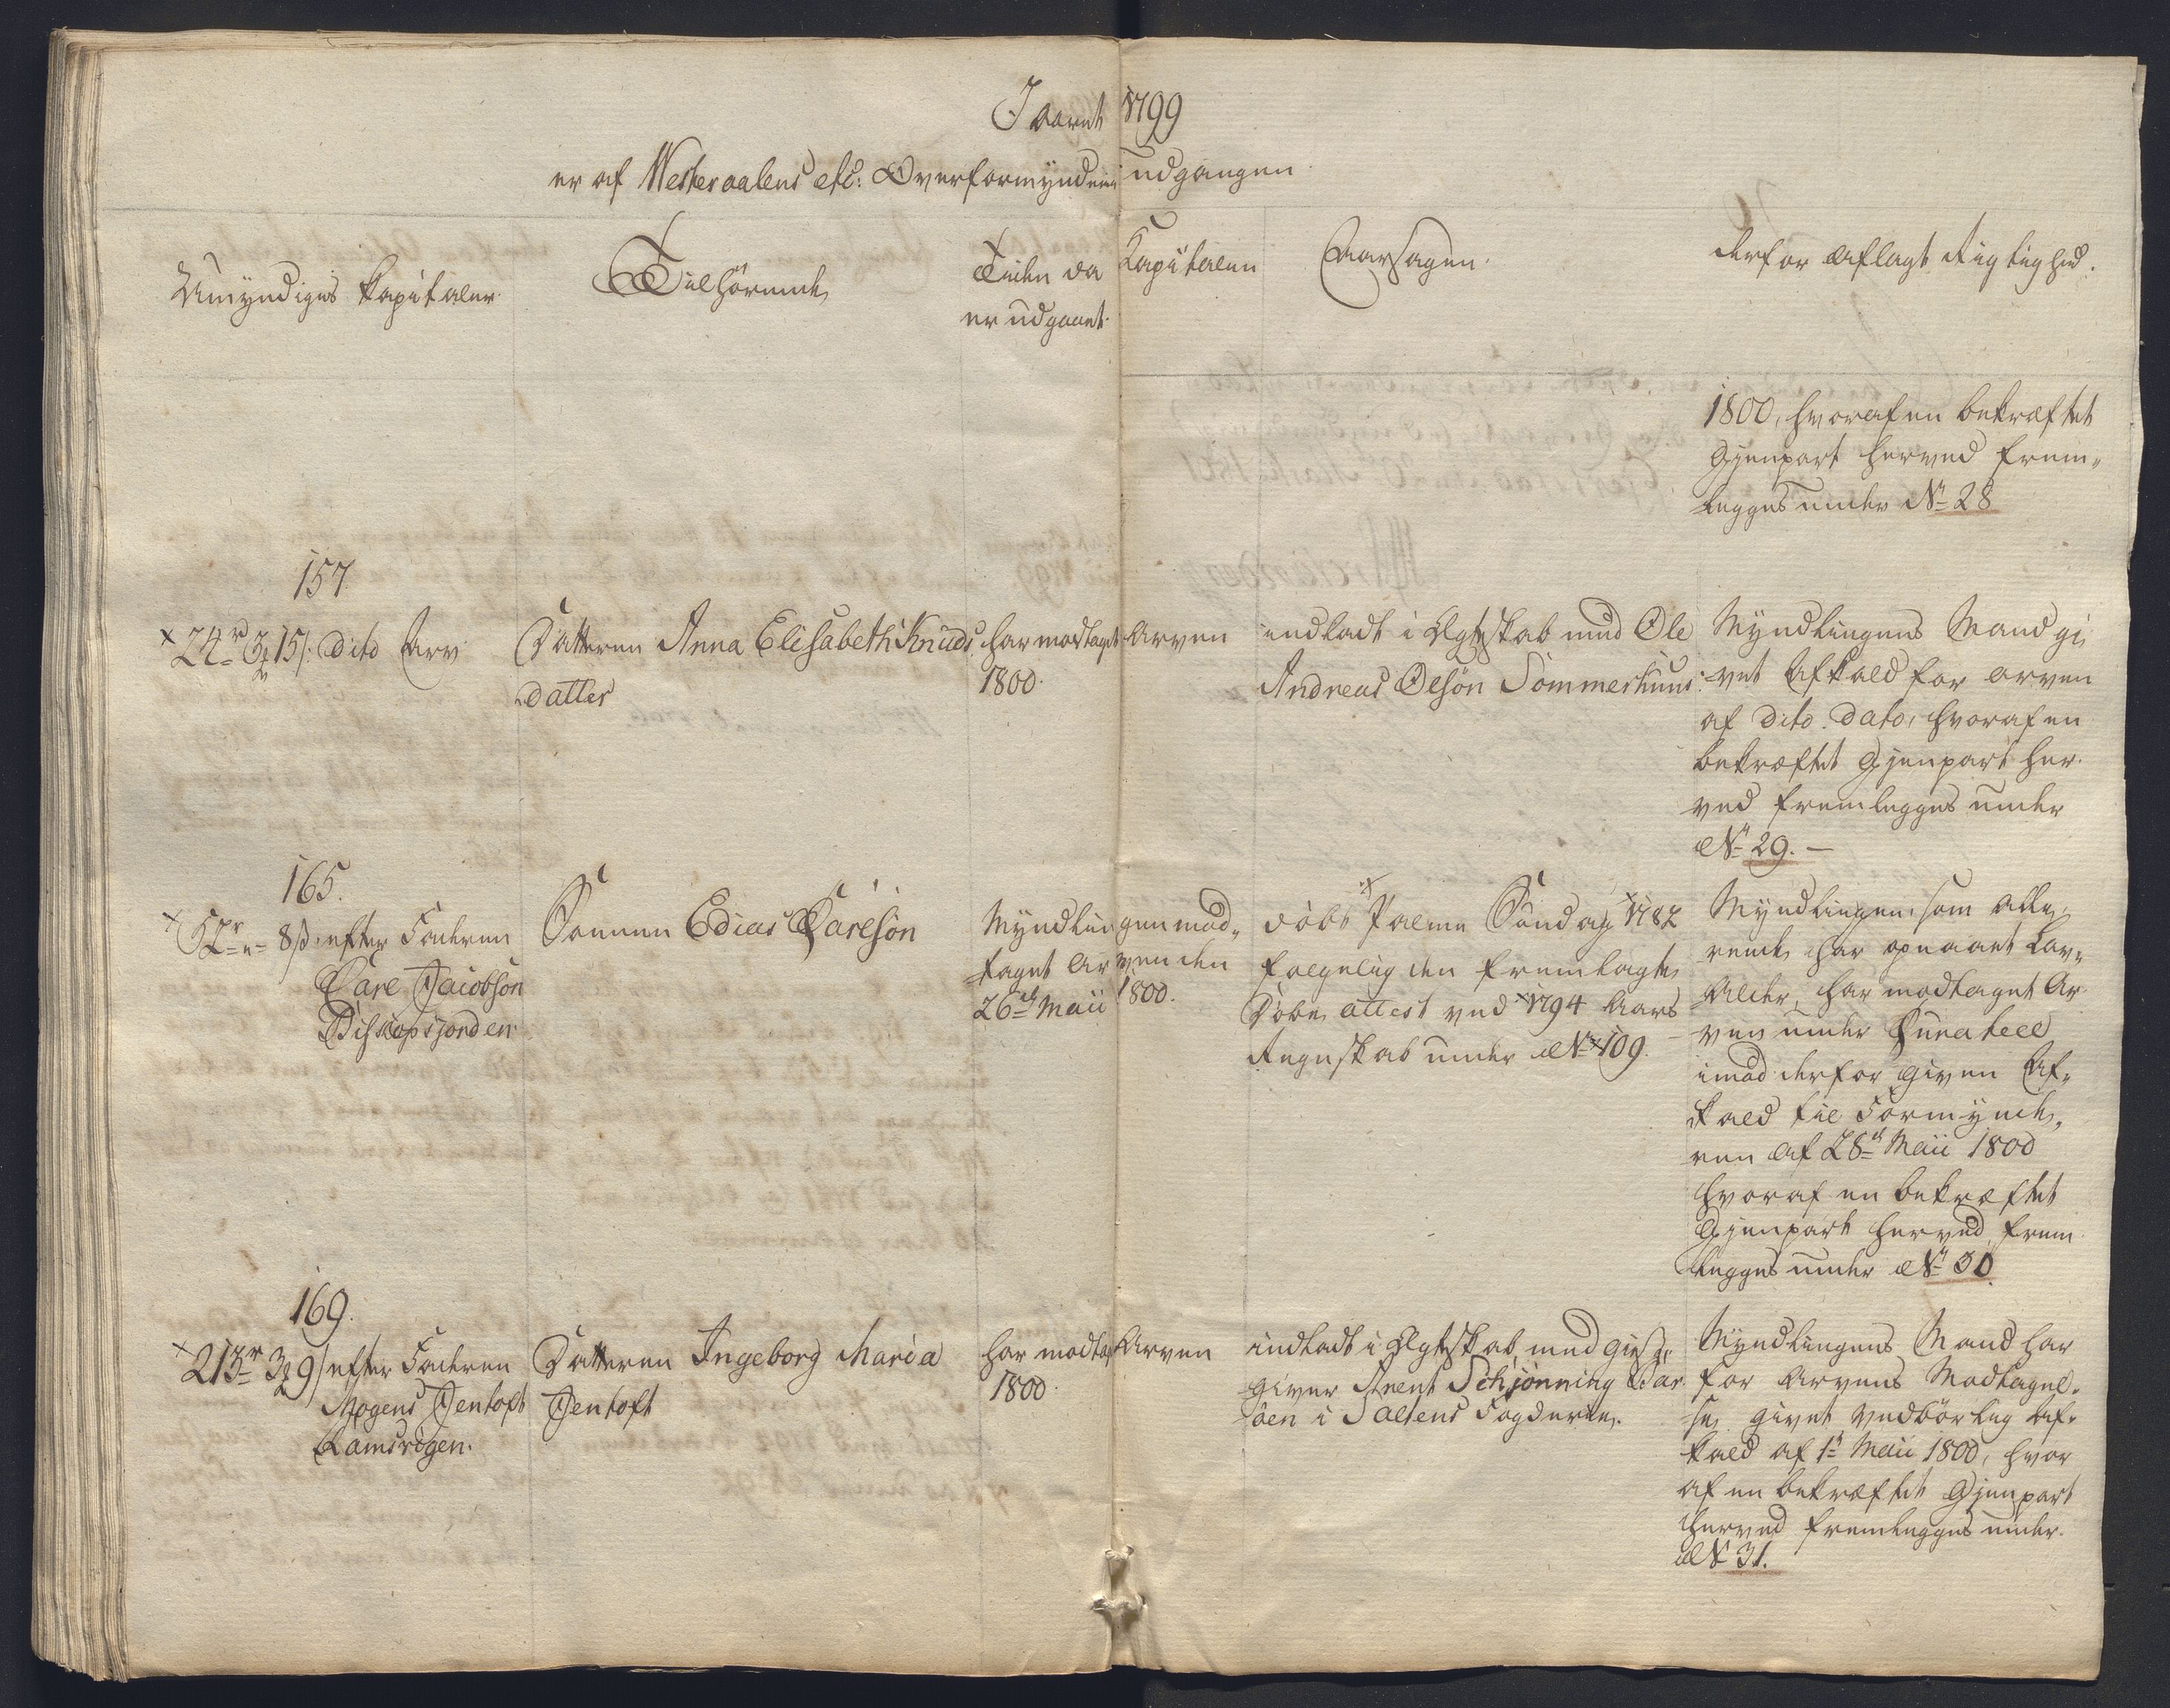 I Aaret 1799
er af Westeraalens etc: Overformynderie udgangen
Umyndiges Kapitaler.
Tilhørende
Tiden da Kapitalen
er udgaaet.
Aarsagen.
derfor aflagt Rigtighed.
1800, hvoraf en bekræftet
Gjenpart herved frem-
legges under No 28
157.
24r 3 15/: dito Arv
Datteren Anna Elisabeth Knuds
datter
har modtaget Arven
1800.
indladt i Ægteskab med Ole
Andreas Olsøn Sommerhuus.
Myndlingens Mand gi-
vet Afkald for arven
af dito dato, hvoraf en
bekræftet Gjenpart her-
ved fremlegges under
No 29. —
165.
52r " 8ß. efter Faderen
Carl Jacobson
Bischopsjorden.
Sønnen Edias Carlson
Myndlingen mod-
taget Arven den
26de Maii 1800.
døbt Palme Søndag 1782
følgelig den fremlagte
Døbe attest ved 1794 Aars
Regnskab under No 109.
Myndlingen, som alle-
rede har opnaaet Lav-
Alder, har modtaget Ar-
ven under Curatell
imod derfor given Af-
kald til Formynde-
ren af 28de Maii 1800
hvoraf en bekræftet
Gjenpart herved frem-
legges under No 30.
169.
213r 3 9/ efter Faderen
Mogens Jentoft
Ramsvigen.
Datteren Ingeborg Maria
Jentoft
har modtaget Arven
1800.
indladt i Ægteskab med Giest-
giver Arent Schjønning Bar-
øen i Saltens Fogderie.
Myndlingens Mand har
for Arvens Modtagel-
se givet vedbørlig Af-
kald af 1te Maii 1800, hvor
af en bekræftet Gjenpart
herved fremlegges under
No 31.